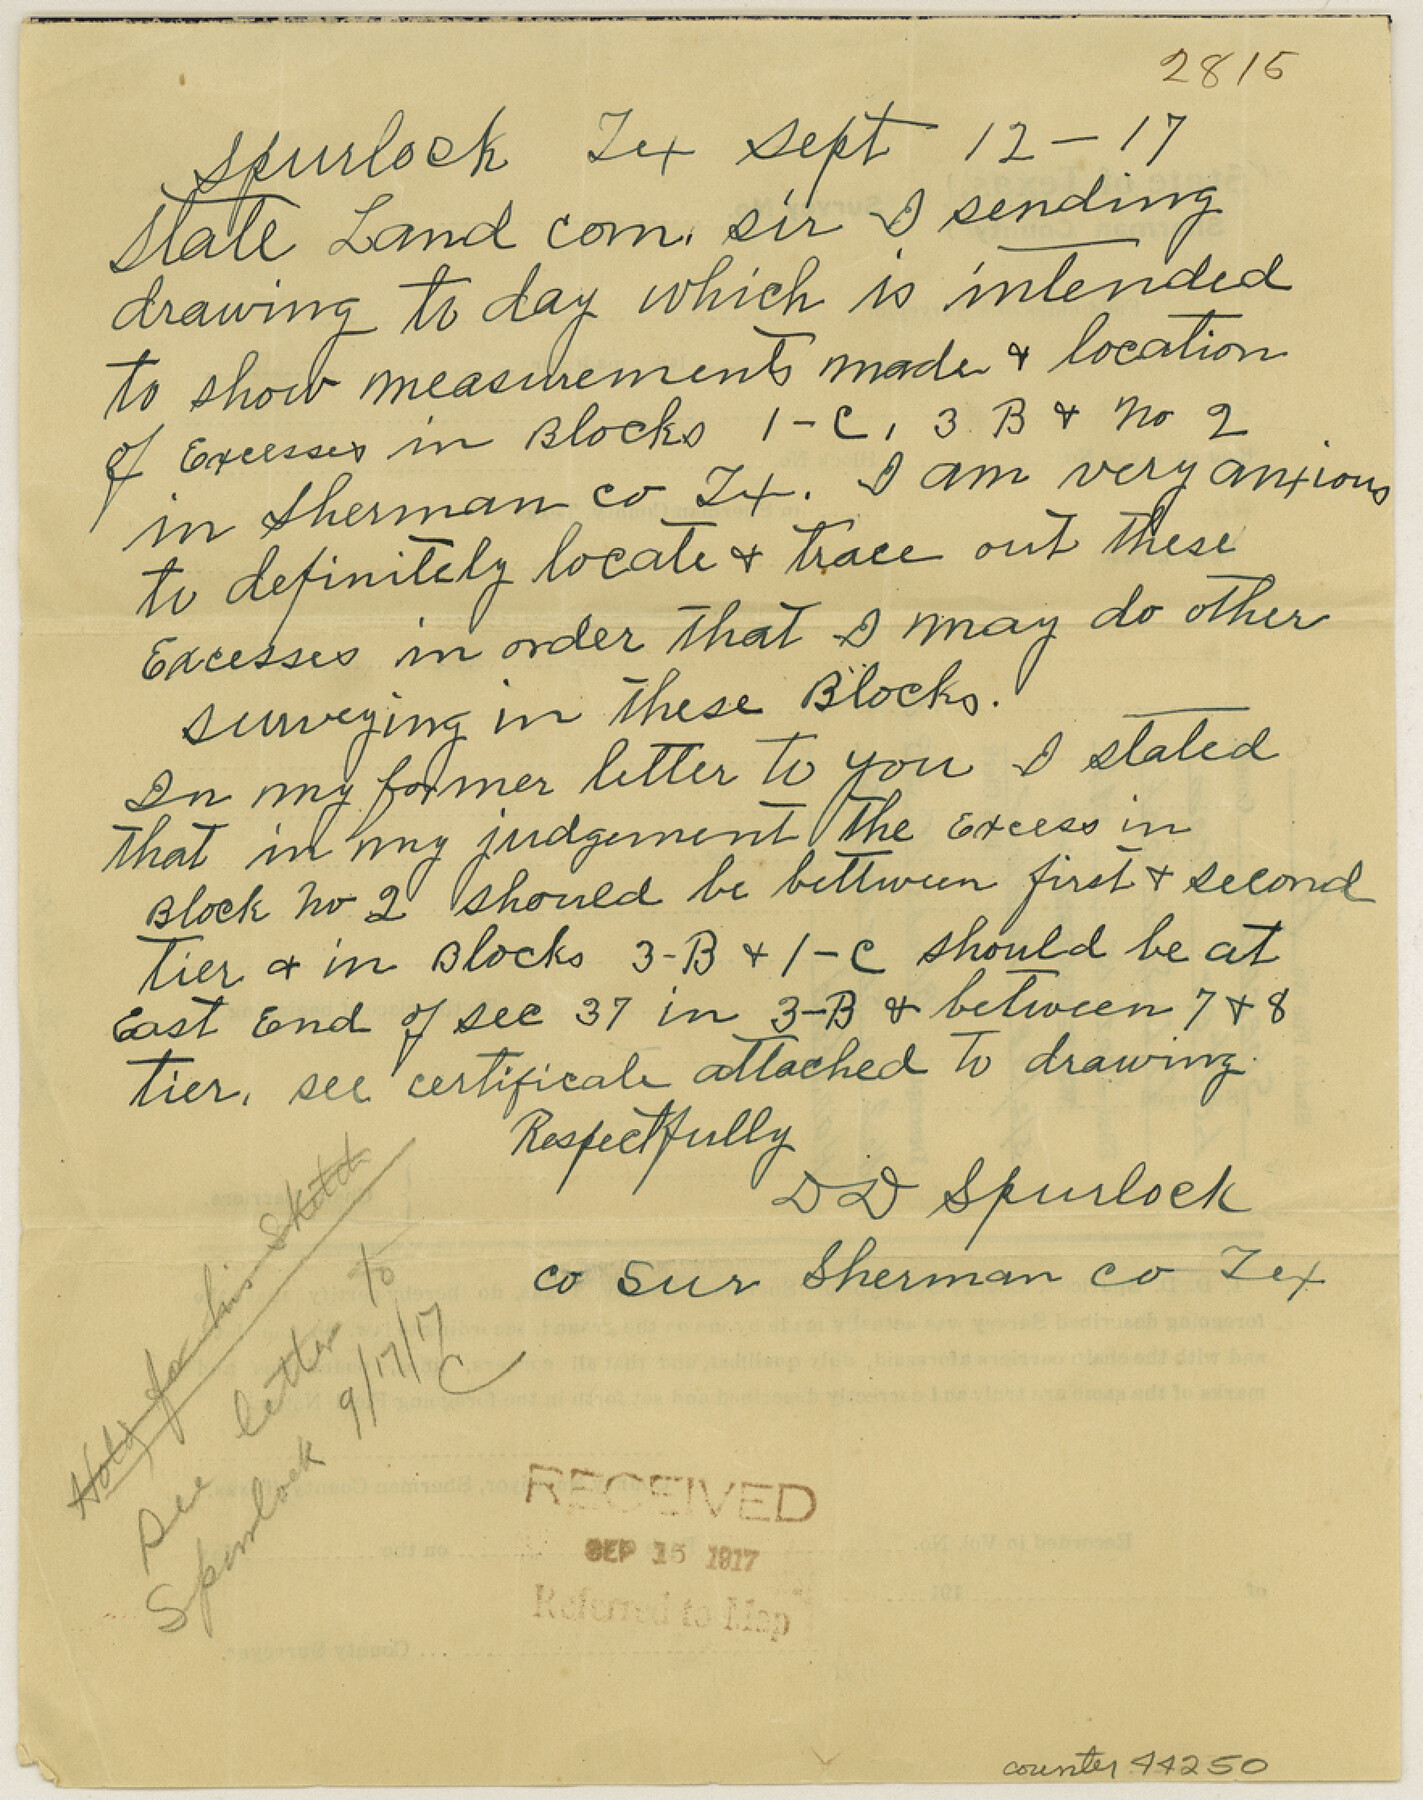 2815
Spurlock Tex Sept 12-17
State Land com. sir I sending
drawing to day which is intended
to show measurements made & location
of Excesses in Blocks 1-C, 3 B & No 2
in Sherman co Tx. I am very anxious
to definitely locate & trace out these
Excesses in order that I may do other
surveying in these Blocks.
In my former letter to you I stated
that in my judgement the Excess in
Block No 2 should be bettween first & second
tier & in Blocks 3-B & 1-C should be at
East End of sec 37 in 3-B & between 7 & 8
tier. see certificate attached to drawing.
Respectfully
DD Spurlock
co Sur Sherman co Tex
Hold for his sketch
See letter to
Spurlock 9/17/17
C
RECEIVED
SEP 15 1917
Referred to Map
counter 44250